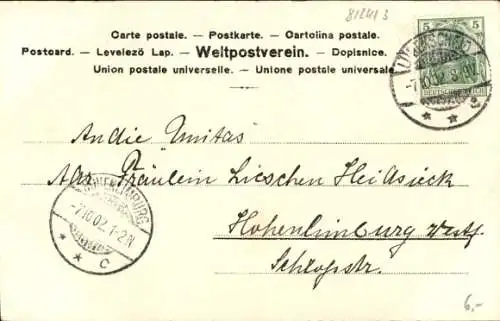 81241 3
Carte postale. — Postkarte. — Cartolina postale.
Postcard. — Levelezö Lap. — Weltpostverein. — Dopisnice.
Union postale universelle. — Unione postale universale.
5 5
LÜDENSCHEID
-7.10.02. 8-9V.
DEUTSCHES REICH
* *
An die "Unitas"
Adr. Fräulein Lieschen Heidsieck
Hohenlimburg Westf.
Schlossstr.
HOHENLIMBURG
-7.10.02. 1-2N
* * c
6,-